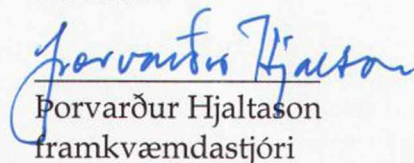 Þorvarður Hjaltason
Þorvarður Hjaltason
framkvæmdastjóri